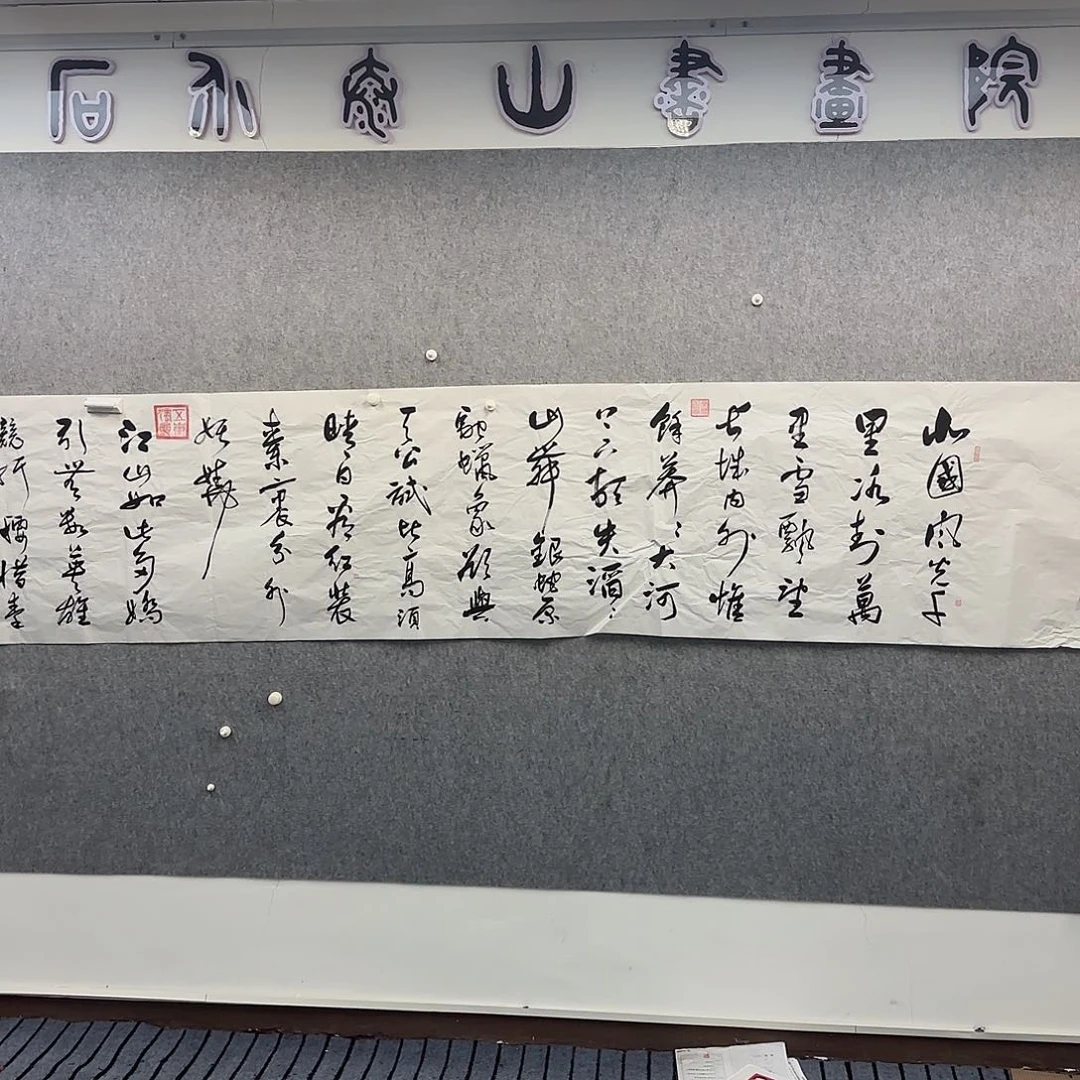 石
山書畫院
北國風光千
里冰封萬
里雪飄望
長城内外惟
餘莽〻大河
上下頓失滔〻
山舞銀蛇原
馳蠟象欲與
天公試比高須
晴日看紅裝
素裹分外
妖嬈
江山如此多嬌
引無數英雄
競折腰惜秦